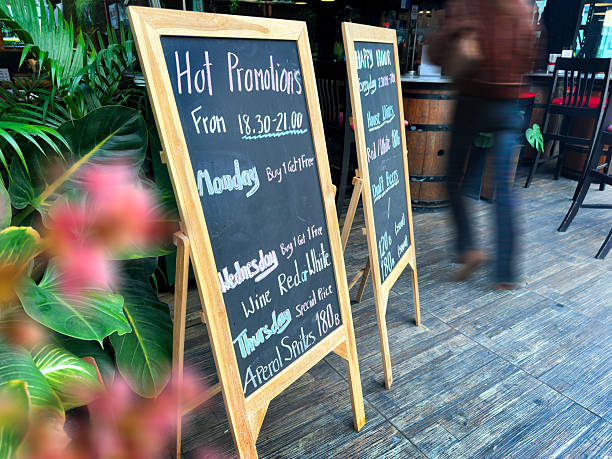 Hot Promotion's
From 18.30-21.00
Monday Buy 1 Get 1 Free
Wednesday Buy 1 Get 1 Free
Wine Red or White
Thursday Special Price
Aperol Spritzs 180B
HAPPY HOUR
Everyday
House Wines
Red White
Draft Beers
120B
180B